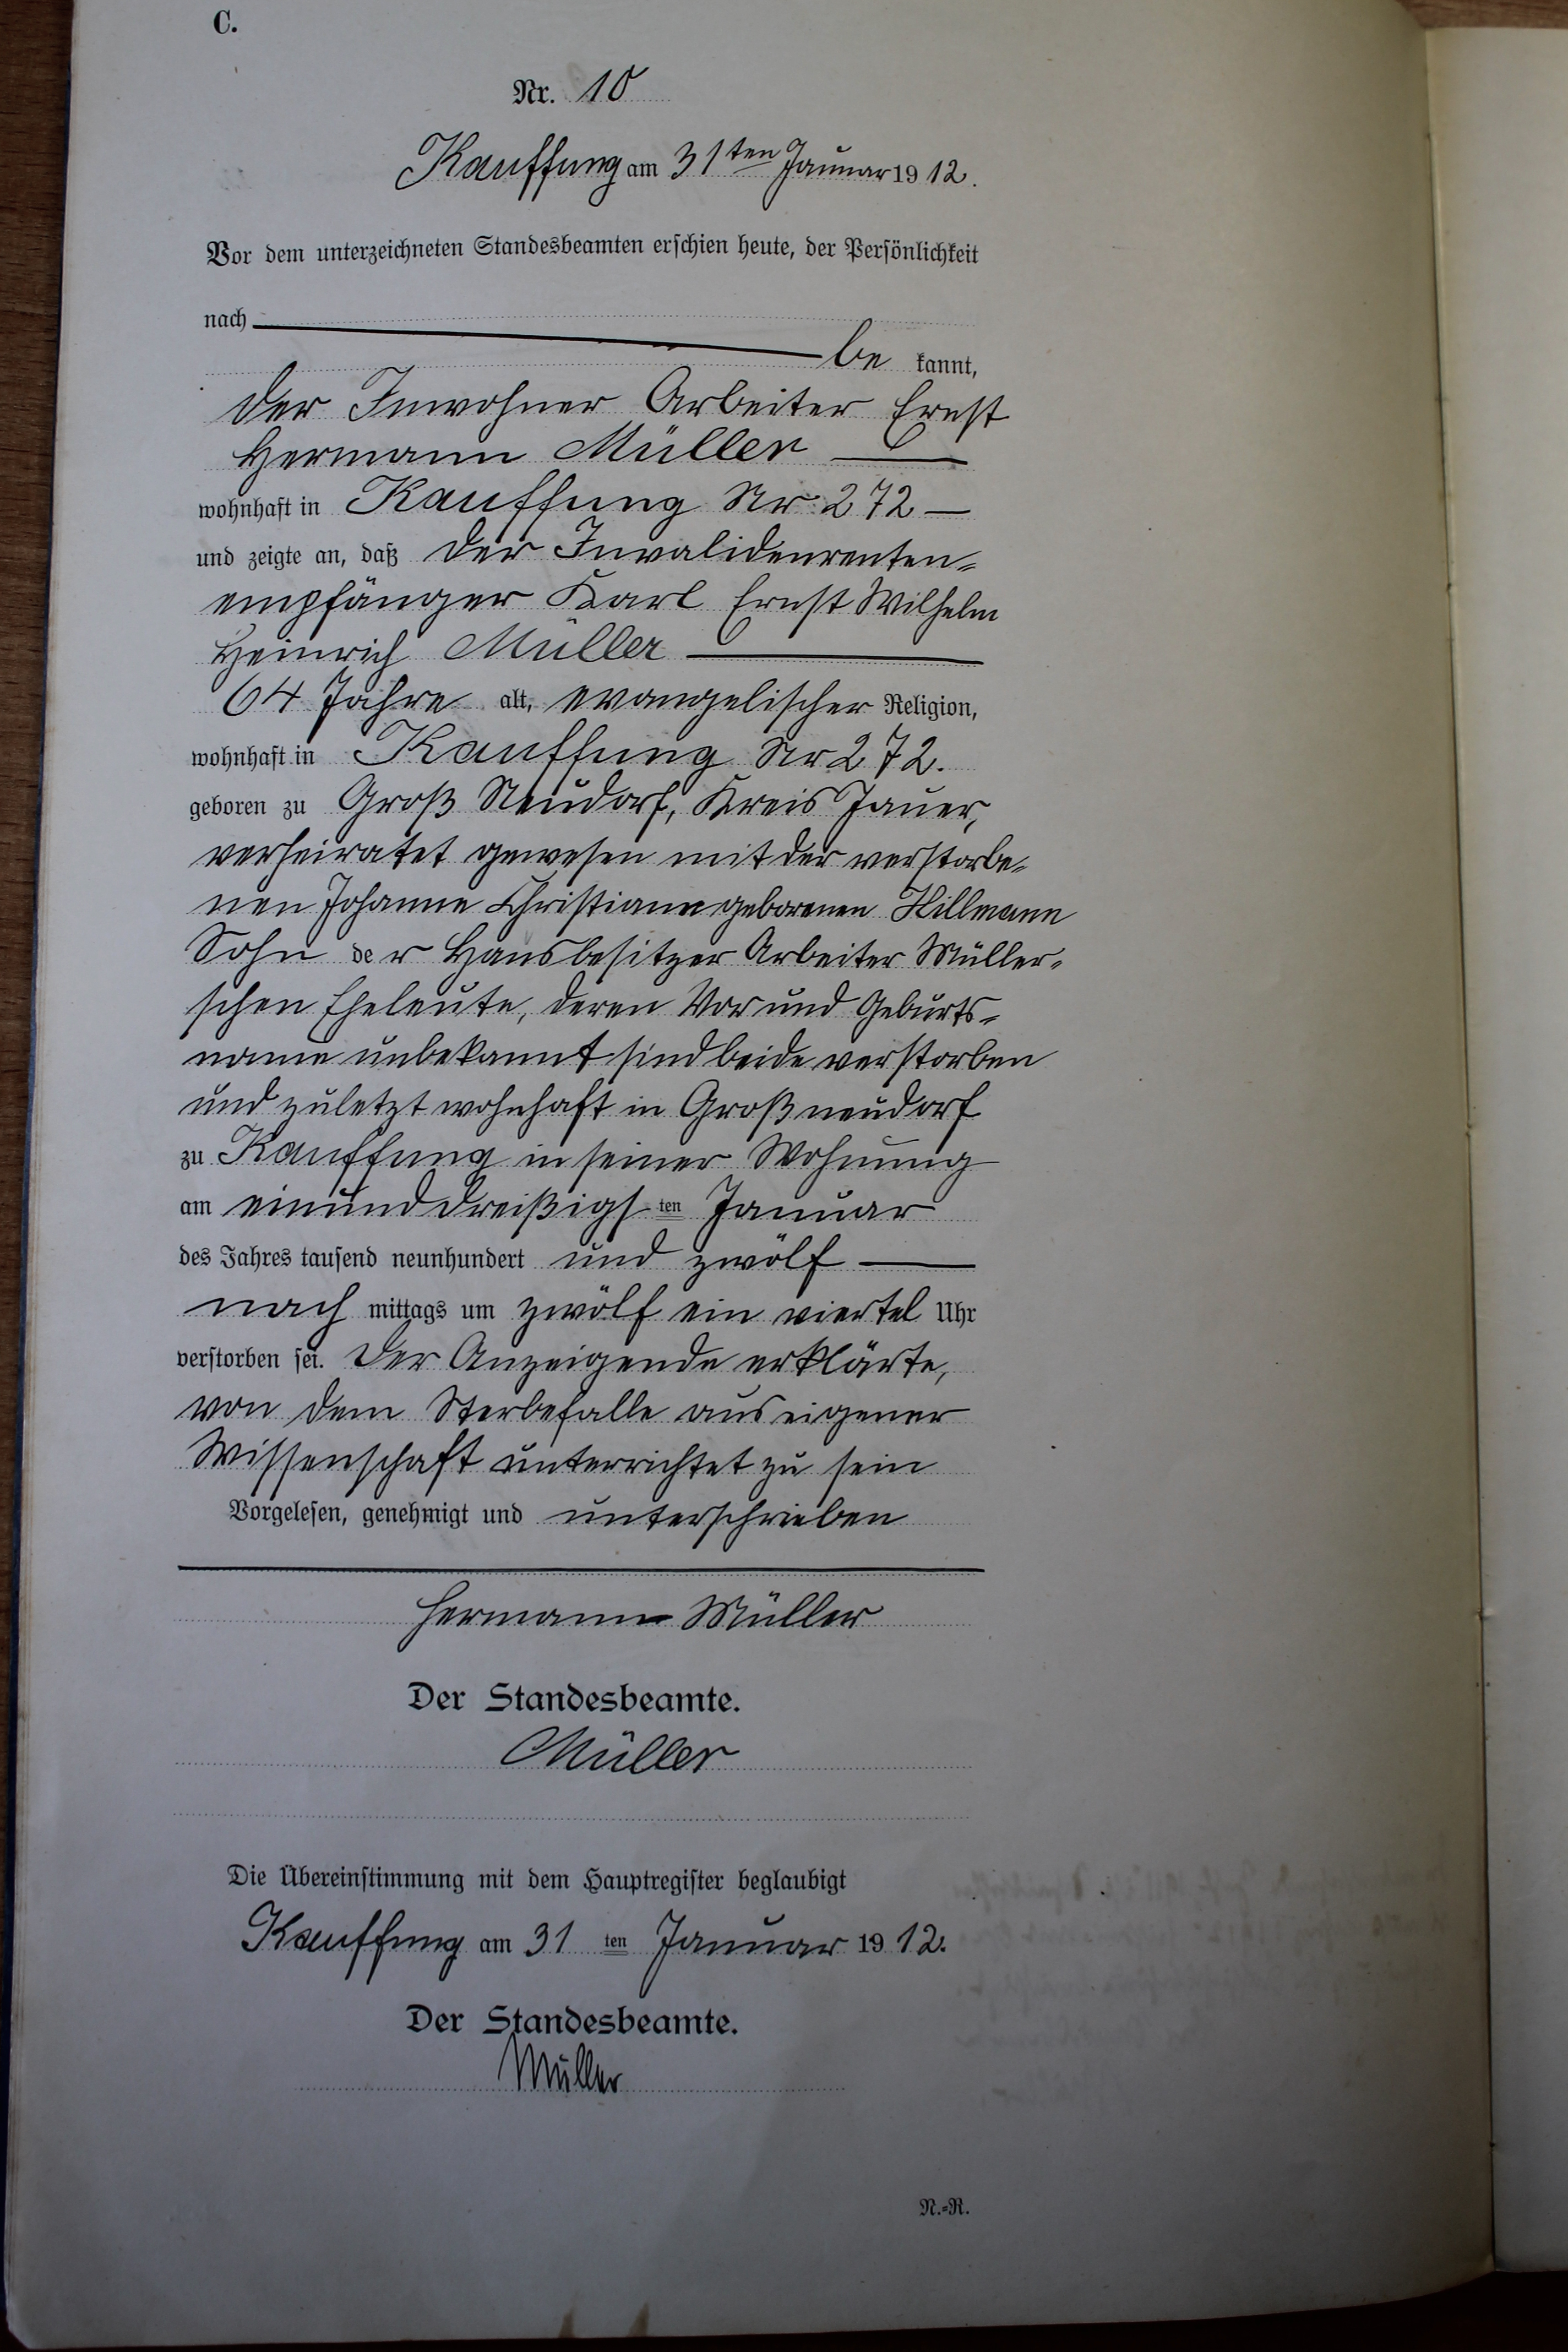 C.
Nr. 10
Kauffung am 31ten Januar 1912.
Vor dem unterzeichneten Standesbeamten erschien heute, der Persönlichkeit
nach
be kannt,
der Inwohner Arbeiter Ernst
Hermann Müller
wohnhaft in Kauffung Nr. 272
und zeigte an, daß der Invalidenrenten-
empfänger Karl Ernst Wilhelm
Heinrich Müller
64 Jahre alt, evangelischer Religion,
wohnhaft in Kauffung Nr 272.
geboren zu Groß Neudorf, Kreis Jauer,
verheiratet gewesen mit der verstorbe-
nen Johanne Christiane geborenen Hillmann
Sohn der Hausbesitzer Arbeiter Müller-
schen Eheleute, deren Vor und Geburts-
name unbekannt sind beide verstorben
und zuletzt wohnhaft in Großneudorf
zu Kauffung in seiner Wohnung
am einunddreißigsten Januar
des Jahres tausend neunhundert und zwölf
nach mittags um zwölf ein viertel Uhr
verstorben sei. Der Anzeigende erklärte,
von dem Sterbefalle aus eigener
Wissenschaft unterrichtet zu sein
Vorgelesen, genehmigt und unterschrieben
Hermann Müller
Der Standesbeamte.
Müller
Die Übereinstimmung mit dem Hauptregister beglaubigt
Kauffung am 31 ten Januar 1912.
Der Standesbeamte.
Müller
N.=R.